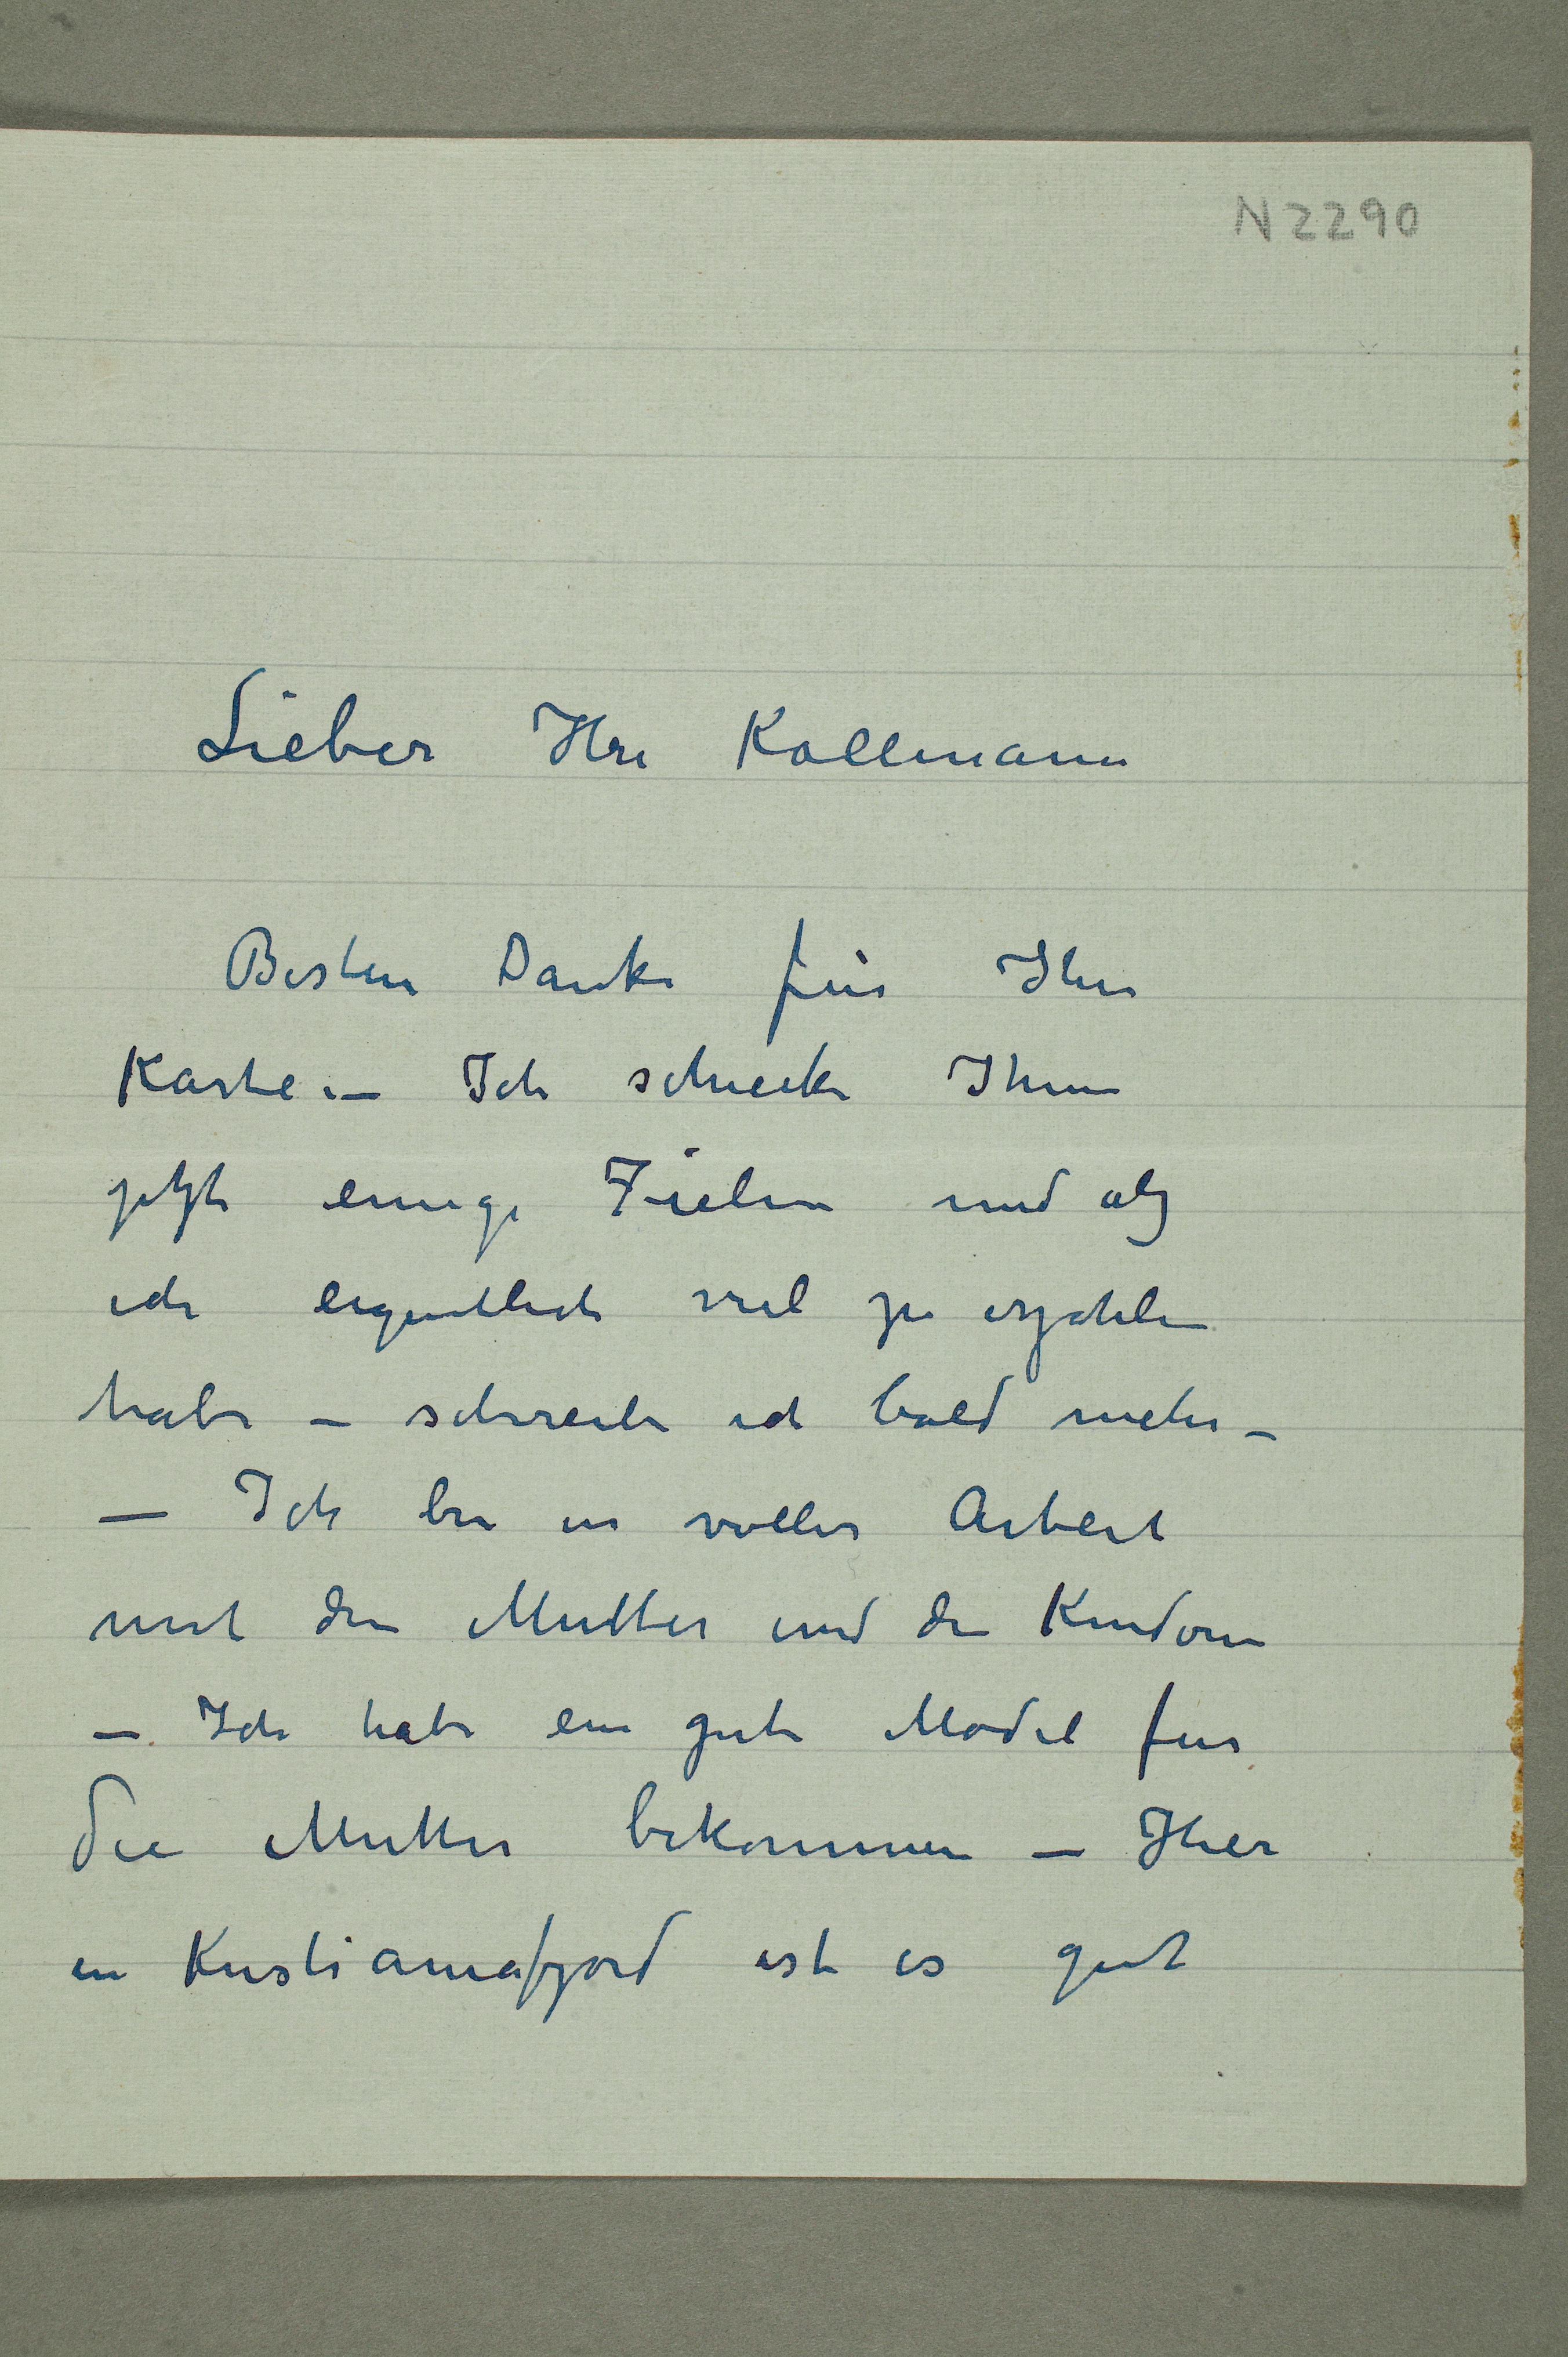 N 2290
Lieber Herr Kollmann
Besten Dank für Ihre
Karte. – Ich schicke Ihnen
jetzt einige Zielen und als
ich eigentlich viel zu erzahlen
habe – schreibe ich bald mehr –
– Ich bin in voller Arbeit
mit den Mutter und den Kindern
– Ich habe ein gute Model für
die Mutter bekommen – Hier
in Kristianiafjord ist es gut